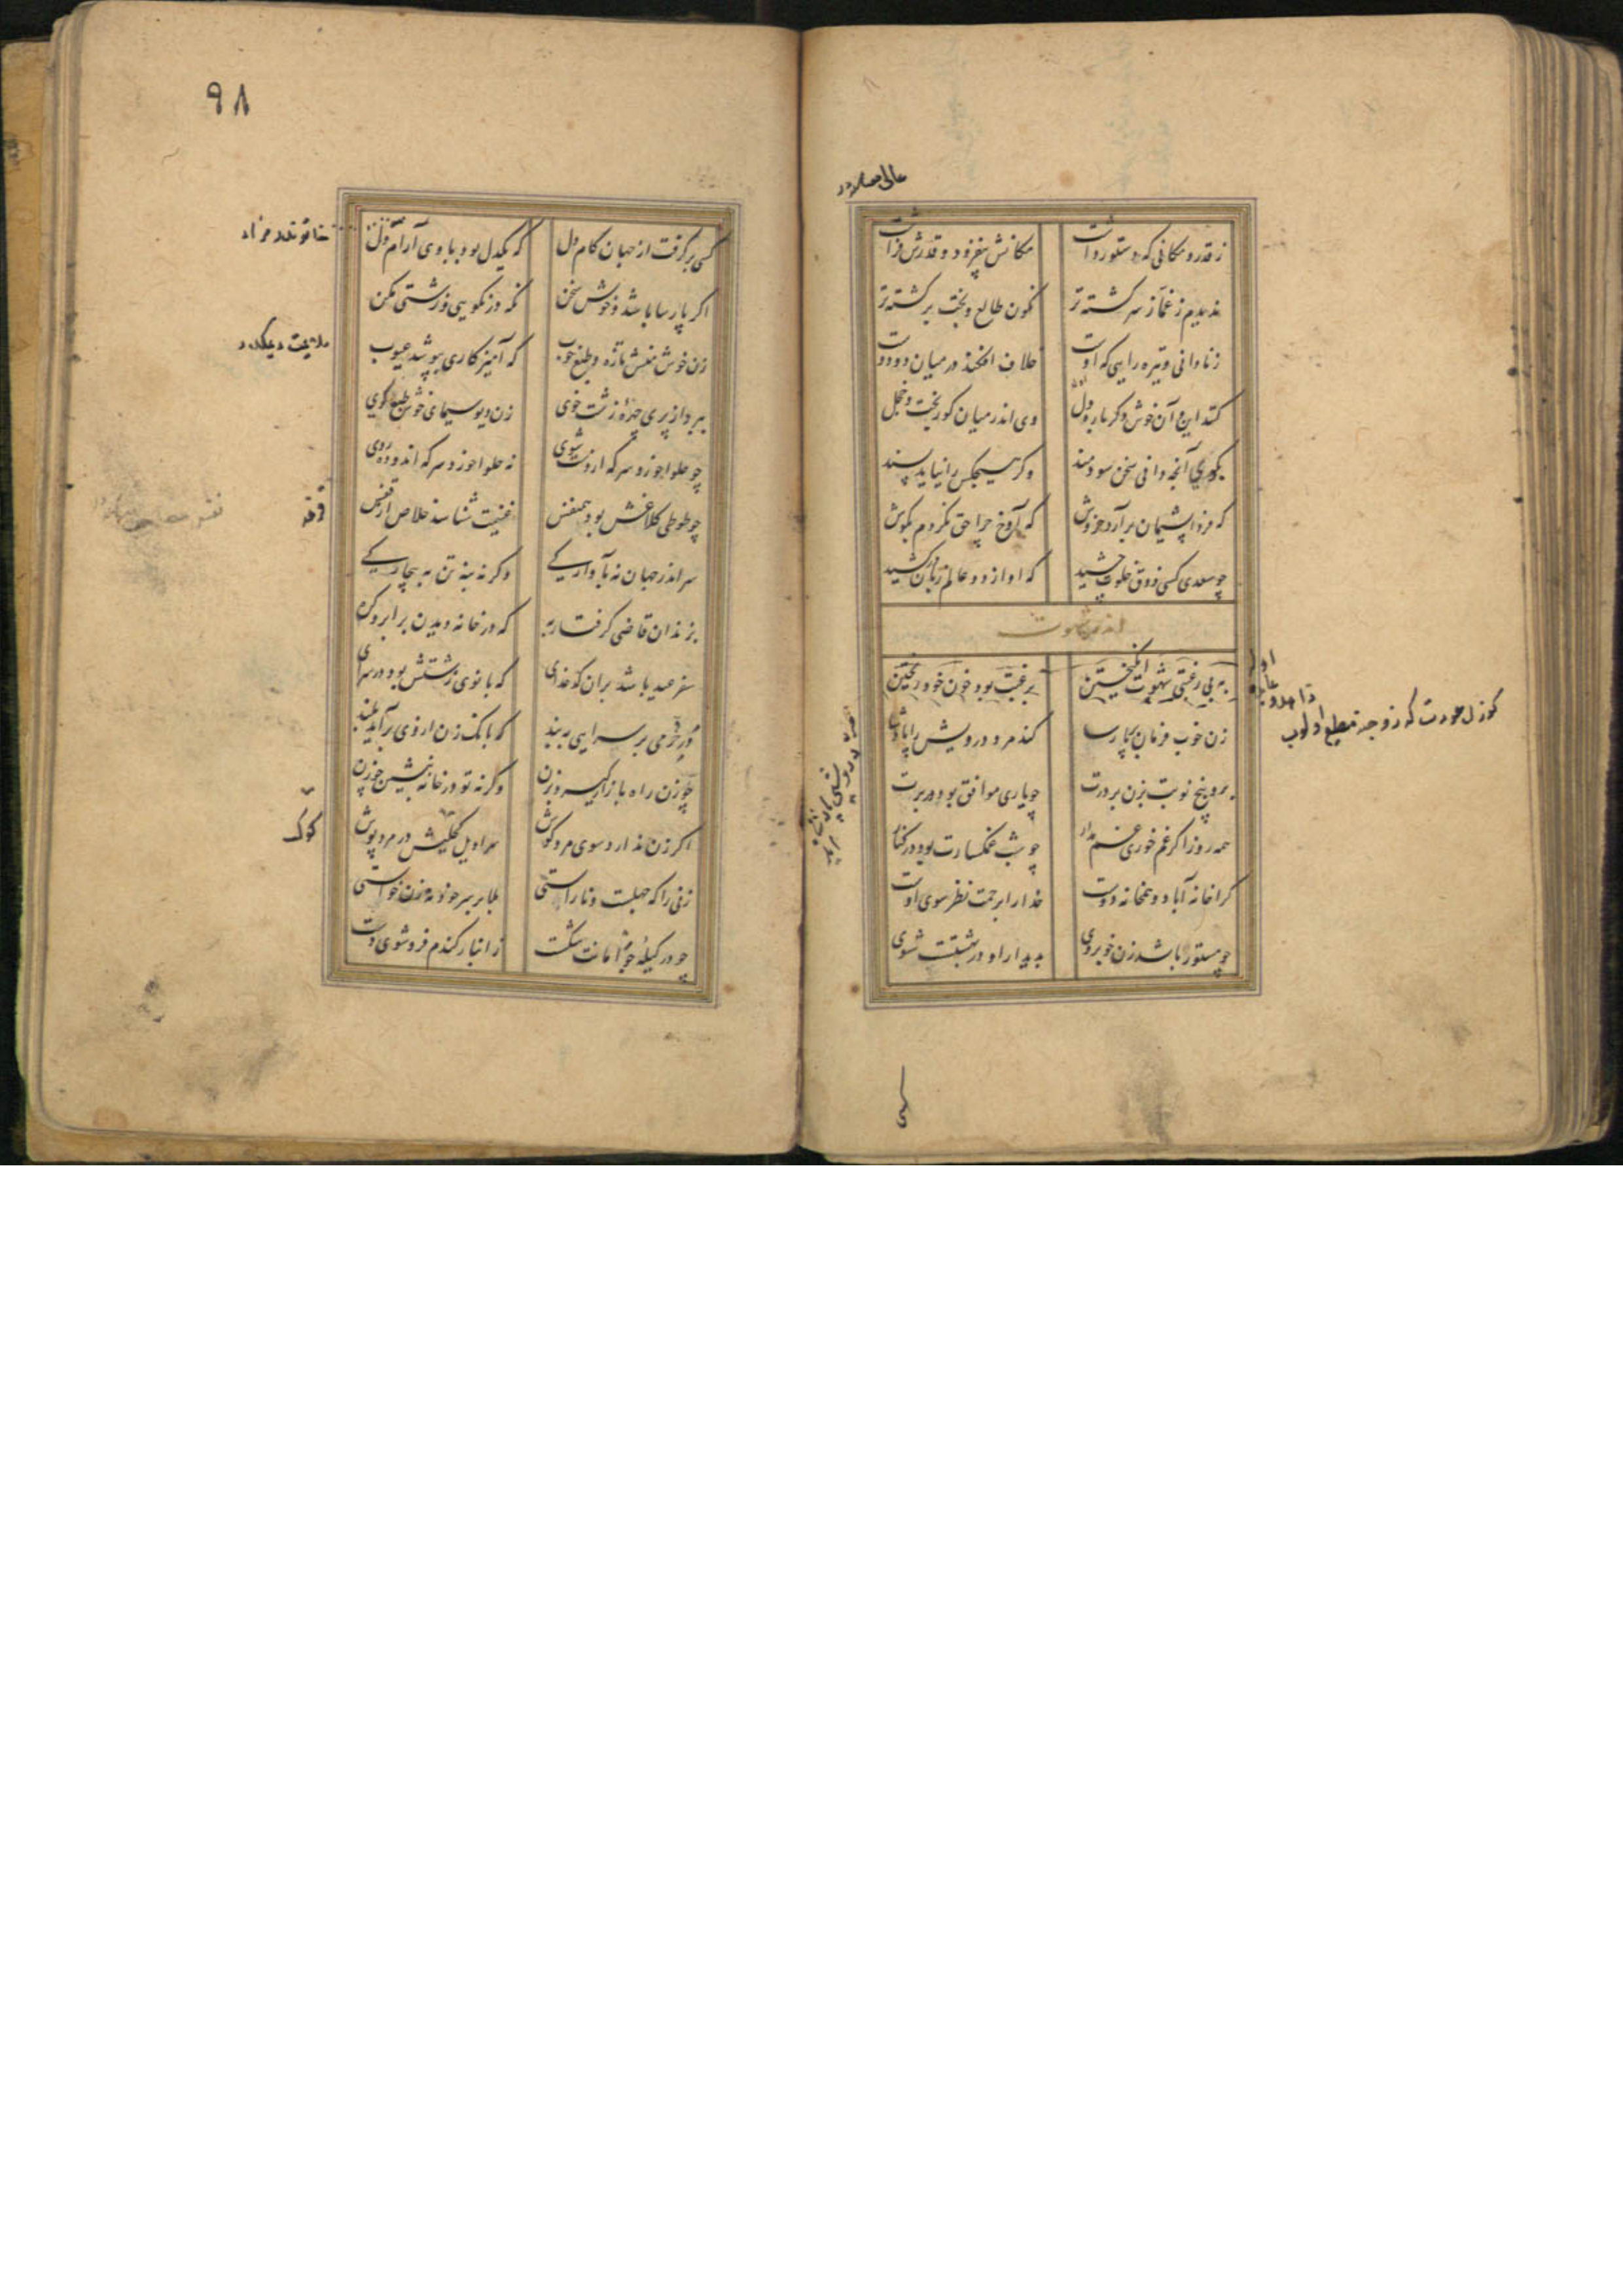 ز قدر و مکانی که دستور داشت
مکانش بیفزود و قدرش فراشت
ندیدم ز غماز سرگشته‌تر
نگون طالع و بخت برگشته‌تر
ز نادانی و تیره رایی که اوست
خلاف افکند در میان دو دوست
کنند این و آن خوش دگرباره دل
وی اندر میان کوربخت و خجل
چو سعدی کسی ذوق خلوت چشید
که او از دو عالم زبان درکشید
بگوی آنچه دانی سخن سودمند
وگر هیچکس را نیاید پسند
که فردا پشیمان برآرد خروش
که آوخ چرا حق نکردم بگوش
به بی رغبتی شهوت انگیختن
برغبت بود خون خود ریختن
زن خوب فرمان‌بر پارسا
کند مرد درویش را پادشا
برو پنج نوبت بزن بر درت
چو یاری موافق بود در برت
همه روز اگر غم خوری غم مدار
چو شب غمگسارت بود در کنار
کرا خانه آباد و همخانه دوست
خدا را برحمت نظر سوی اوست
چو مستور باشد زن خوبروی
بدیدار او در بهشتست شوی
۹۸
کسی برگرفت از جهان کام دل
که یکدل بود با وی آرام دل
اگر پارسا باشد و خوش سخن
نگه در نکویی و زشتی مکن
زن خوش منش تازه و طبع خوب
که آمیزگاری بپوشد عیوب
ببرد از پری چهره زشت خوی
زن دیو سیمای خوش طبع گوی
چو حلوا خورد سرکه از دست شوی
نه حلوا خورد سرکه اندوده روی
چو طوطی کلاغش بود همنفس
غنیمت شناسد خلاص از قفس
سر اندر جهان نه بآوارگی
وگرنه بنه تن به بیچارگی
بزندان قاضی گرفتار به
که در خانه دیدن بر ابرو گره
سفر عید باشد بران کدخدای
که بانوی زشتش بود در سرای
در خرمی بر سرایی ببند
که بانگ زن از وی برآید بلند
چو زن راه بازار گیرد بزن
وگرنه تو در خانه بنشین چو زن
اگر زن ندارد سوی مرد گوش
سراویل کحلیش در مرد پوش
زنی را که جهلست و ناراستی
بلا بر سر خود نه زن خواستی
چو در کیله جو امانت شکست
از انبار گندم فرو شوی دست